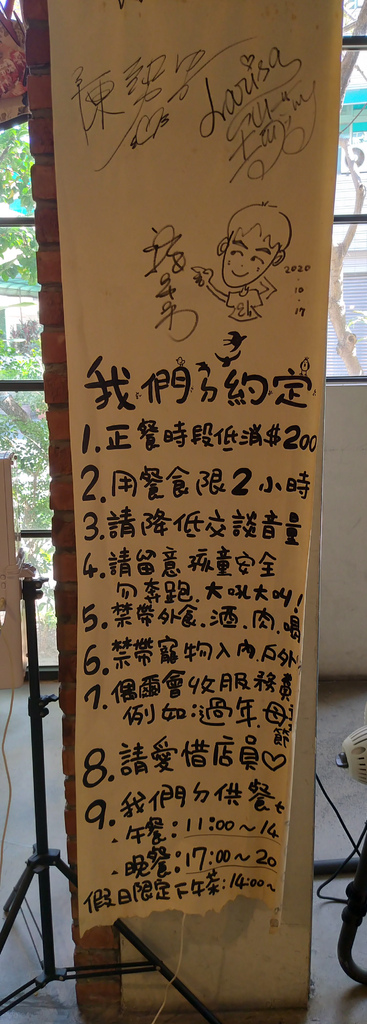 陳
Larisa
2020
10.17
我們ㄉ約定
1.正餐時段低消$200
2.用餐食限2小時
3.請降低交談音量
4.請留意孩童安全
勿奔跑.大吼大叫!
5.禁帶外食.酒.肉.喝
6.禁帶寵物入內.戶外
7.偶爾會收服務費
例如:過年.母
節
8.請愛惜店員♡
9.我們ㄉ供餐
·午餐:11:00~14
·晚餐:17:00~20
假日限定下午茶:14:00~